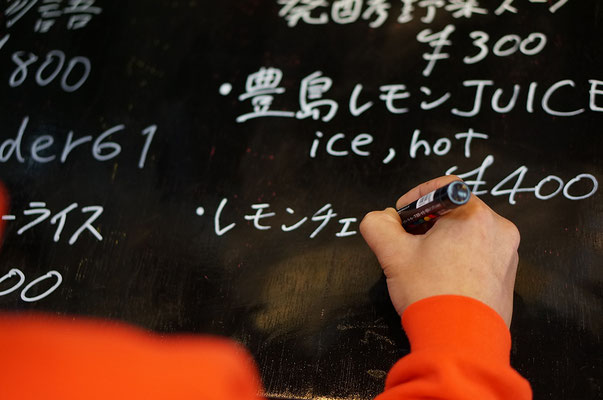 物語
発酵野菜スープ
¥300
800
・豊島レモンJUICE
ice, hot
¥400
der61
ーライス
・レモンチェ
00